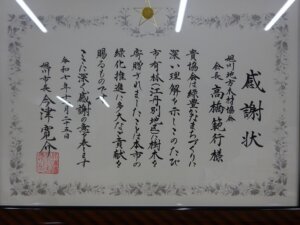 感謝状
旭川地方木材協会
会長 高橋範行様
貴協会は緑豊かなまちづくりに
深い理解を示しこのたび
市有林江丹別地区に樹木を
寄贈されましたことは本市の
緑化推進に多大なご貢献を
賜るもので
ここに深く感謝の意を表します
令和七年十一月二十五日
旭川市長 今津寛介